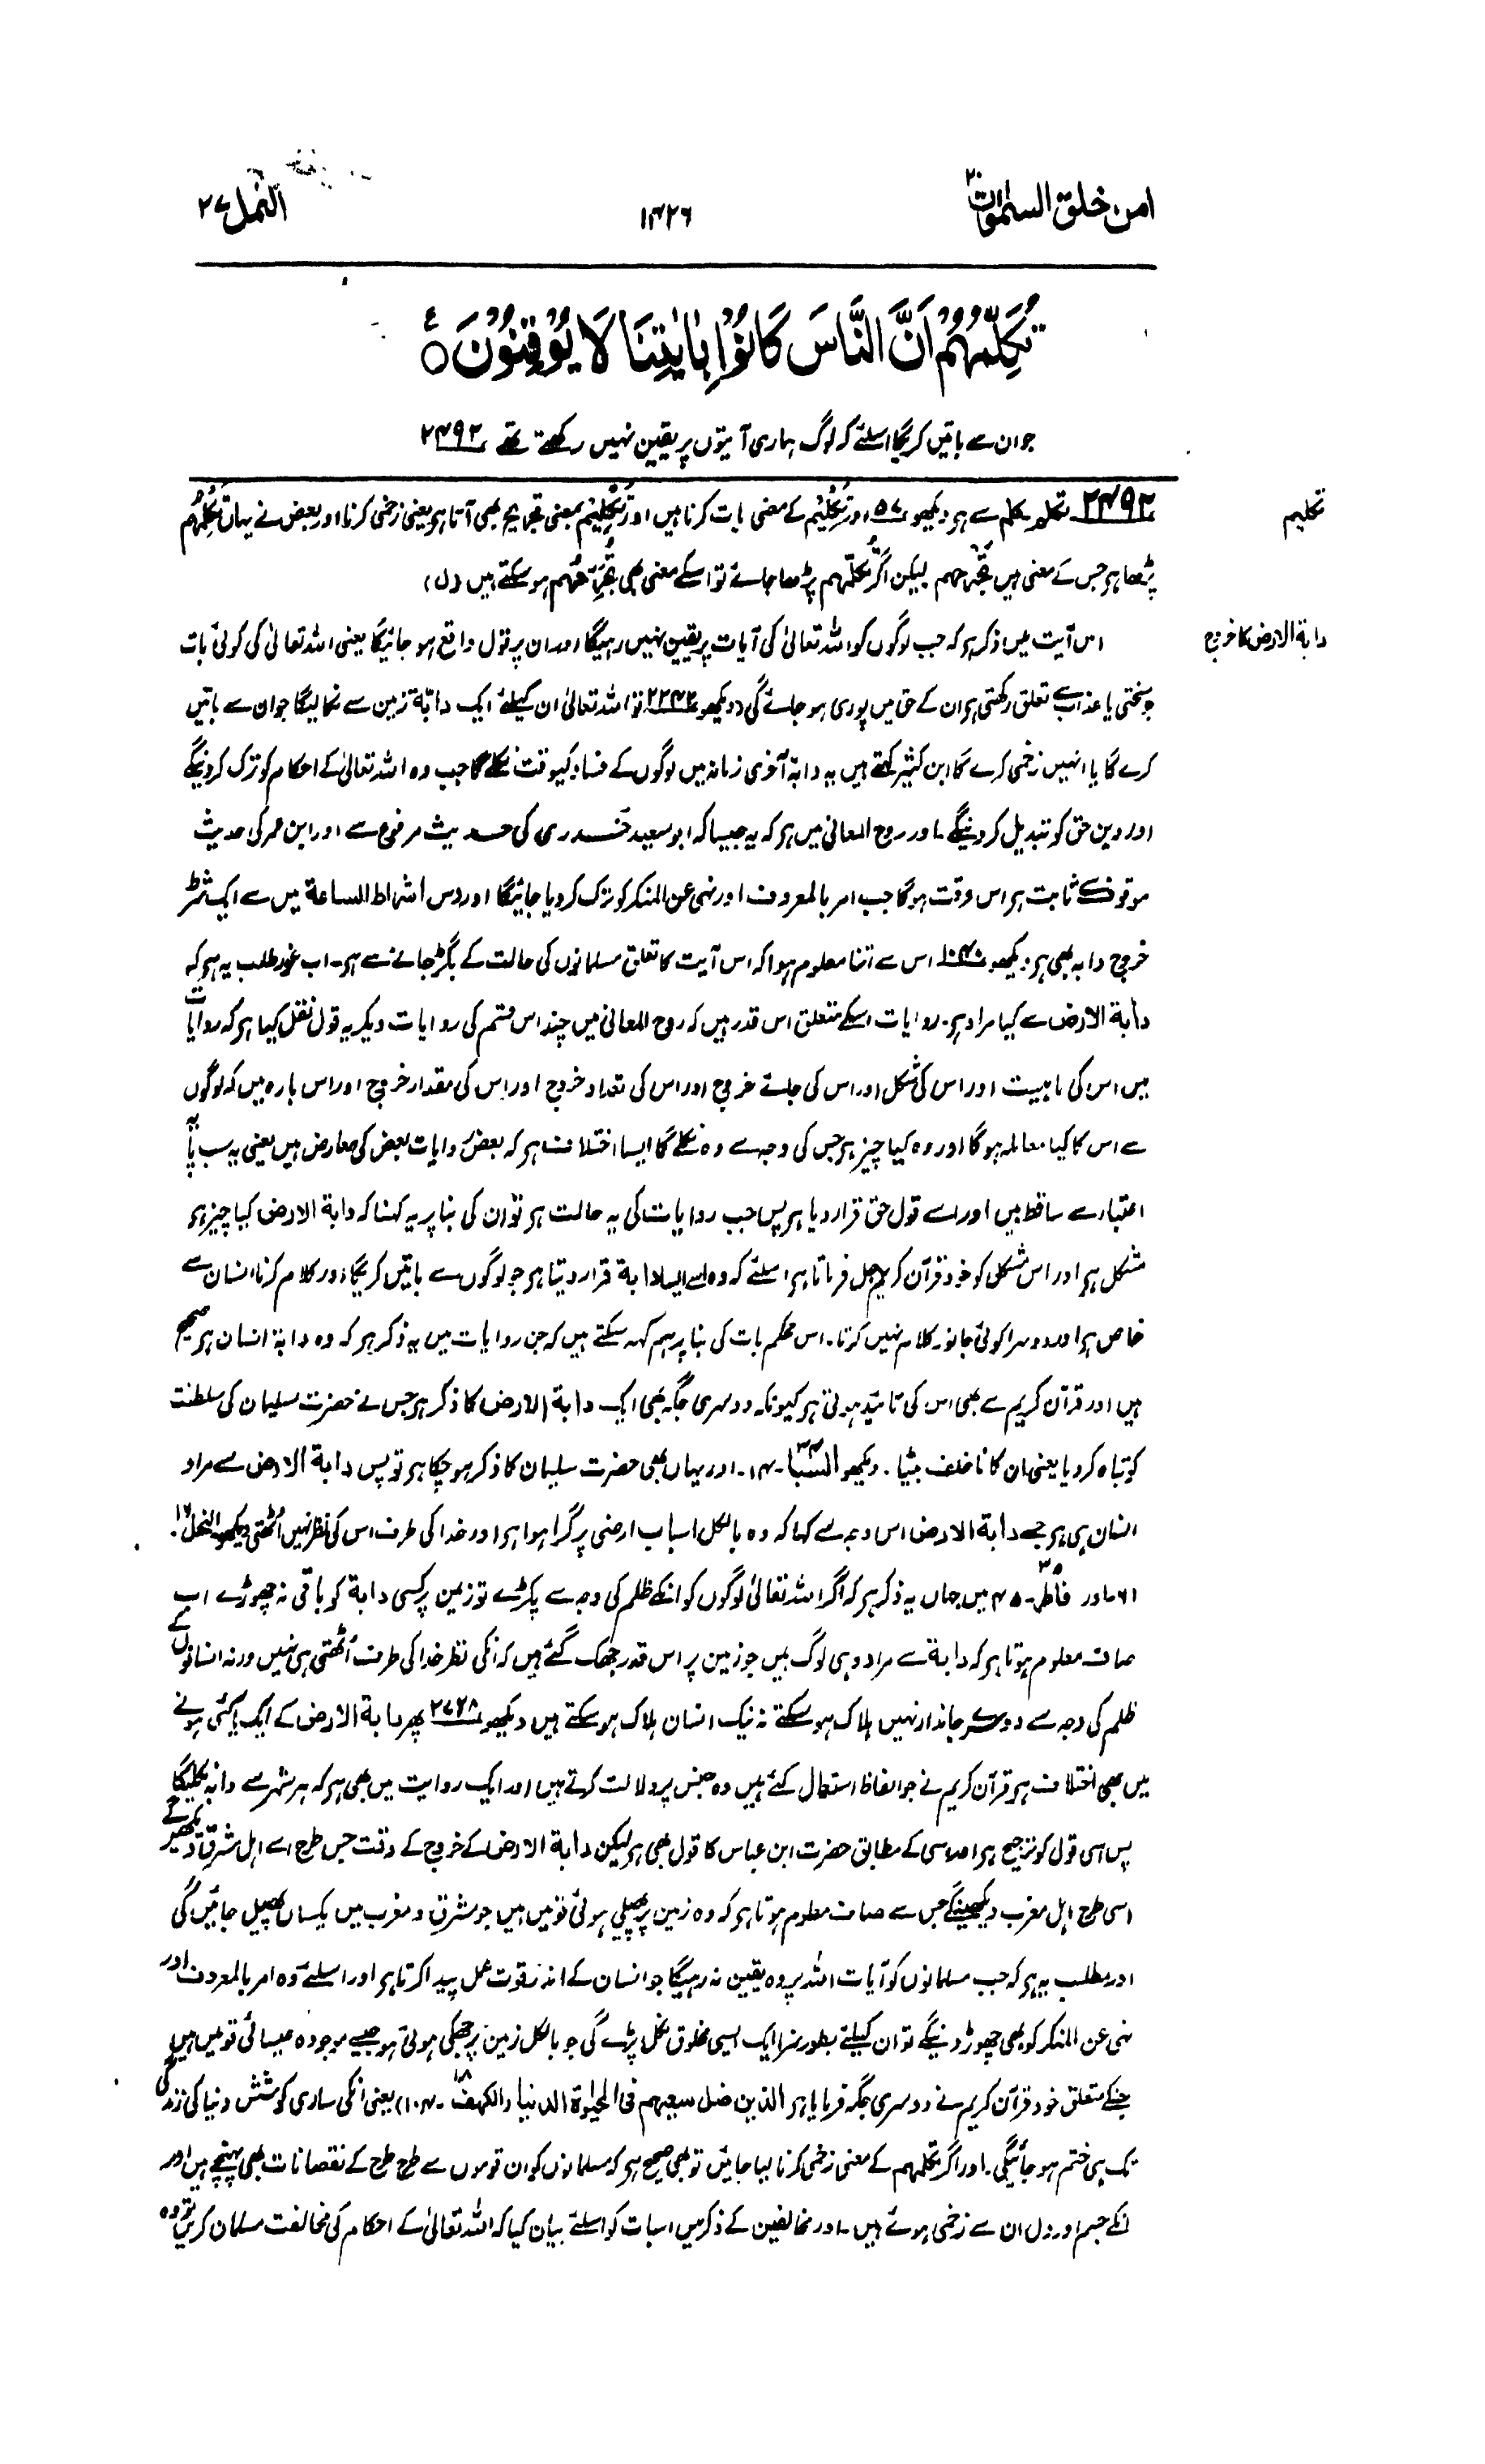 امن خلق السمٰوات ۲۰
۱۴۲۶
النمل ۲۷
تُكَلِّمُهُمْ اَنَّ النَّاسَ كَانُوْا بِاٰيٰتِنَا لَا يُوْقِنُوْنَ ○ ع
جو ان سے باتیں کریگا اسلئے کہ لوگ ہماری آیتوں پر یقین نہیں رکھتے تھے ۲۴۹۲
تکلیم
۲۴۹۲ تکلم کلم سے ہو دیکھو ۵۷ اور تَکْلِیْم کے معنی بات کرنا ہیں اور تَکْلِیْم بمعنی تجریح بھی آتا ہو یعنی زخمی کرنا اور بعض نے یہاں تَکْلِمُهُم
پڑھا ہر جس کے معنی ہیں تجرحهم لیکن اگر تکلّمهم پڑھا جائے تو اسکے معنی بھی تُجَرِّحُهُم ہو سکتے ہیں (ل)
دابة الارض کا خروج
اس آیت میں ذکر ہر کہ جب لوگوں کو اللہ تعالیٰ کی آیات پر یقین نہیں رہیگا اور ان پر قول واقع ہو جائیگا یعنی اللہ تعالیٰ کی کوئی بات
جو سختی یا عذاب سے تعلق رکھتی ہو ان کے حق میں پوری ہو جائے گی (دیکھو ۲۲۴۲ تو اللہ تعالیٰ ان کیلئے ایک دابّة زمین سے نکالیگا جو ان سے باتیں
کرے گا یا انہیں زخمی کرے گا ابن کثیر کہتے ہیں یہ دابة آخری زمانہ میں لوگوں کے فساد کیوقت نکلے گا جب وہ اللہ تعالیٰ کے احکام کو ترک کر دینگے
اور دین حق کو تبدیل کر دینگے ۔ اور روح المعانی میں ہر کہ یہ جیسا کہ ابو سعید خدری کی حدیث مرفوع سے اور ابن عمر کی حدیث
موقوف سے ثابت ہر اس وقت ہو گا جب امر بالمعروف اور نہی عن المنکر کو ترک کر دیا جائیگا اور دس اشراط الساعة میں سے ایک شرط
خروج دابہ بھی ہر دیکھو ۱۰۴۰ اس سے اتنا معلوم ہوا کہ اس آیت کا تعلق مسلمانوں کی حالت کے بگڑ جانے سے ہر ۔ اب غور طلب یہ ہر کہ
دابة الارض سے کیا مراد ہر ۔ روایات اسکے متعلق اس قدر ہیں کہ روح المعانی میں چند اس قسم کی روایات دیکر یہ قول نقل کیا ہر کہ روایات
میں اس کی ماہیت اور اس کی شکل اور اس کی جائے خروج اور اس کی تعداد خروج اور اس کی مقدار خروج اور اس بارہ میں کہ لوگوں
سے اس کا کیا معاملہ ہو گا اور وہ کیا چیز ہر جس کی وجہ سے وہ نکلے گا ایسا اختلاف ہر کہ بعض روایات بعض کی معارض ہیں یعنی یہ سب پایہ
اعتبار سے ساقط ہیں اور اسے قول حق قرار دیا ہر پس جب روایات کی یہ حالت ہر تو ان کی بنا پر یہ کہنا کہ دابة الارض کیا چیز ہر
مشکل ہر اور اس مشکل کو خود قرآن کریم حل فرماتا ہر اسلئے کہ وہ اسے ایسا دابة قرار دیتا ہر جو لوگوں سے باتیں کریگا اور کلام کرنا انسان سے
خاص ہر اور دوسرا کوئی جانور کلام نہیں کرتا ۔ اس محکم بات کی بنا پر ہم کہہ سکتے ہیں کہ جن روایات میں یہ ذکر ہر کہ وہ دابة انسان ہر صحیح
ہیں اور قرآن کریم سے بھی اس کی تائید ہوتی ہر کیونکہ دوسری جگہ بھی ایک دابة الارض کا ذکر ہر جس نے حضرت سلیمان کی سلطنت
کو تباہ کر دیا یعنی ان کا ناخلف بیٹا ۔ دیکھو السبا ۳۴ ۔ ۱۴ ۔ اور یہاں بھی حضرت سلیمان کا ذکر ہو چکا ہر تو پس دابة الارض سے مراد
انسان ہی ہر جسے دابة الارض اس وجہ سے کہا کہ وہ بالکل اسباب ارضی پر گرا ہوا ہر اور خدا کی طرف اس کی نظر نہیں اُٹھتی دیکھو النحل ۱۶ ۔
۶۱ اور فاطر ۳۵ ۔ ۴۵ میں جہاں یہ ذکر ہر کہ اگر اللہ تعالیٰ لوگوں کو انکے ظلم کی وجہ سے پکڑے تو زمین پر کسی دابة کو باقی نہ چھوڑے اب
صاف معلوم ہوتا ہر کہ دابة سے مراد وہی لوگ ہیں جو زمین پر اس قدر جھک گئے ہیں کہ انکی نظر خدا کی طرف اُٹھتی ہی نہیں ورنہ انسانوں کے
ظلم کی وجہ سے دوسرے جاندار نہیں ہلاک ہو سکتے نہ نیک انسان ہلاک ہو سکتے ہیں دیکھو ۲۷۲۸ پھر دابة الارض کے ایک یا کئی ہونے
میں بھی اختلاف ہر قرآن کریم نے جو الفاظ استعمال کئے ہیں وہ جنس پر دلالت کرتے ہیں اور ایک روایت میں بھی ہر کہ ہر شہر سے دابہ نکلیگا
پس اسی قول کو ترجیح ہر اور اسی کے مطابق حضرت ابن عباس کا قول بھی ہر لیکن دابة الارض کے خروج کے وقت جس طرح اسے اہل مشرق دیکھیں گے
اسی طرح اہل مغرب دیکھینگے جس سے صاف معلوم ہوتا ہر کہ وہ زمین پر پھیلی ہوئی قومیں ہیں جو مشرق و مغرب میں یکساں پھیل جائیں گی
اور مطلب یہ ہر کہ جب مسلمانوں کو آیات اللہ پر وہ یقین نہ رہیگا جو انسان کے اندر قوت عمل پیدا کرتا ہر اور اسلئے وہ امر بالمعروف اور
نہی عن المنکر کو بھی چھوڑ دینگے تو ان کیلئے بطور سزا ایک ایسی مخلوق نکل پڑے گی جو بالکل زمین پر جھکی ہوئی ہو جیسے موجودہ عیسائی قومیں ہیں
جنکے متعلق خود قرآن کریم نے دوسری جگہ فرمایا ہر الذین ضل سعیهم فی الحیٰوة الدنیا (الکهف ۱۸ ۔ ۱۰۴) یعنی انکی ساری کوشش دنیا کی زندگی
تک ہی ختم ہو جائیگی ۔ اور اگر تکلمهم کے معنی زخمی کرنا لیا جائیں تو بھی صحیح ہر کہ مسلمانوں کو ان قوموں سے طرح طرح کے نقصانات بھی پہنچے ہیں اور
انکے جسم اور دل ان سے زخمی ہوئے ہیں ۔ اور مخالفین کے ذکر میں اسبات کو اسلئے بیان کیا کہ اللہ تعالیٰ کے احکام کی مخالفت مسلمان کریں تو وہ